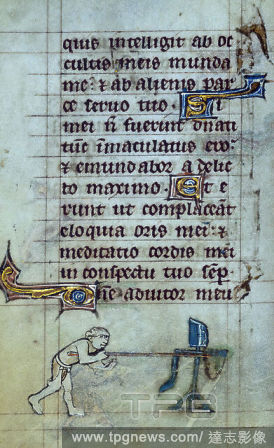 quis intelligit ab oc
cultis meis munda
me: & ab alienis par
ce servo tuo. Si
mei n̄ fuerint dn̄ati
tūc īmaculatus ero:
& emundabor a delic
to maximo. Et e
runt ut complaceāt
eloquia oris mei: &
meditatio cordis mei
in conspectu tuo semp̄.
Dn̄e adiutor meu
TPG
www.tpgnews.com/達志影像